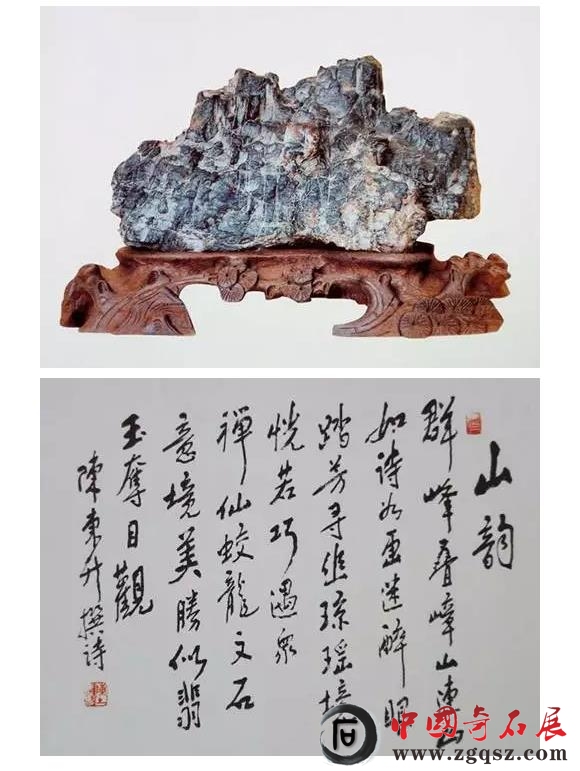 山韵
群峰叠嶂山連山
如诗如画迷醉眼
踏芳寻佳琼瑶境
恍若巧遇眾
禪仙蛟龍文石
意境美勝似翡
玉奪目觀
陳東升撰诗
中國奇石展
www.zgqsz.com